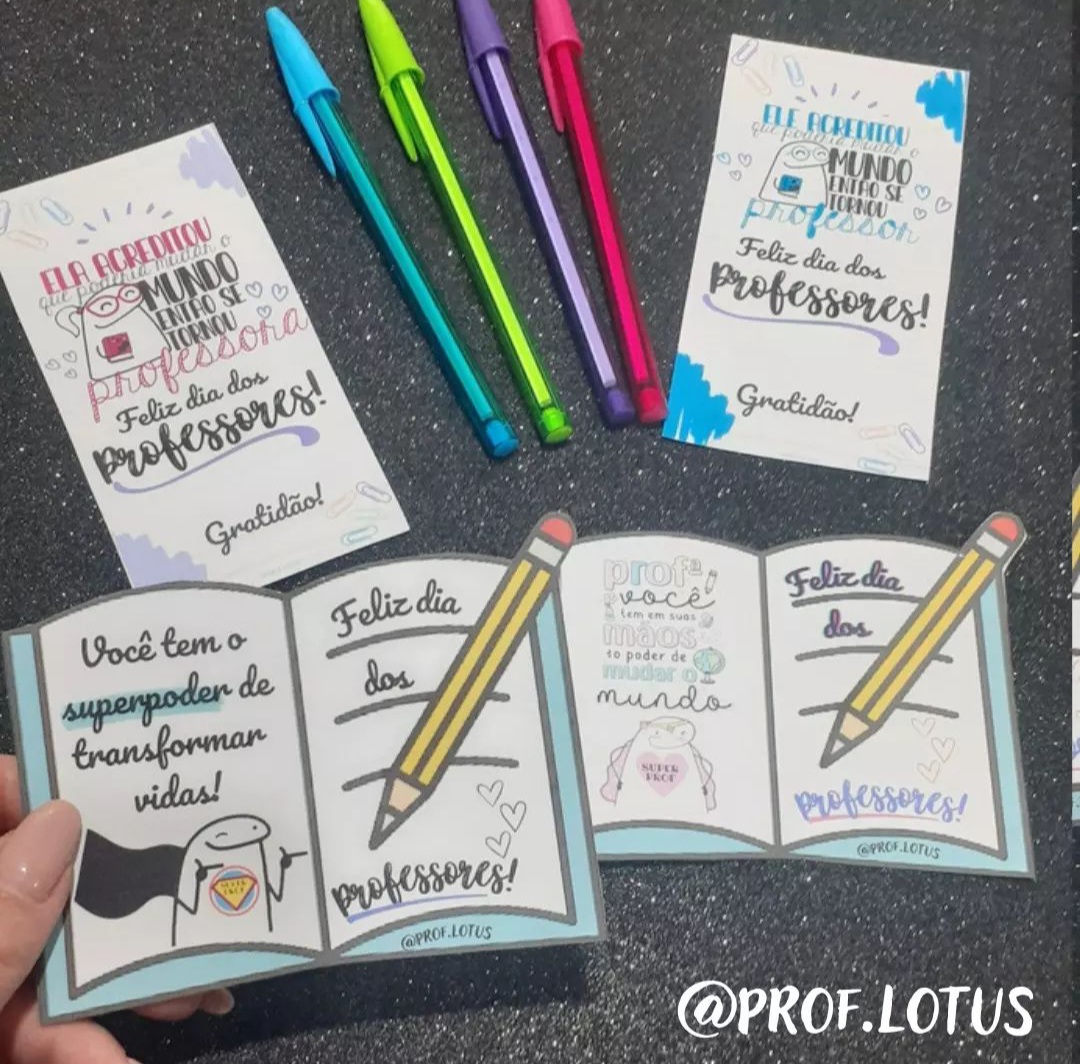 ELA ACREDITOU
que poderia mudar o
MUNDO
ENTÃO SE
TORNOU
professora
Feliz dia dos
professores!
Gratidão!
ELE ACREDITOU
que poderia mudar o
MUNDO
ENTÃO SE
TORNOU
professor
Feliz dia dos
professores!
Gratidão!
Você tem o
superpoder de
transformar
vidas!
Feliz dia
dos
professores!
@PROF.LOTUS
profª
você
tem em suas
mãos
o poder de
mudar o
mundo
SUPER
PROF
Feliz dia
dos
professores!
@PROF.LOTUS
@PROF.LOTUS